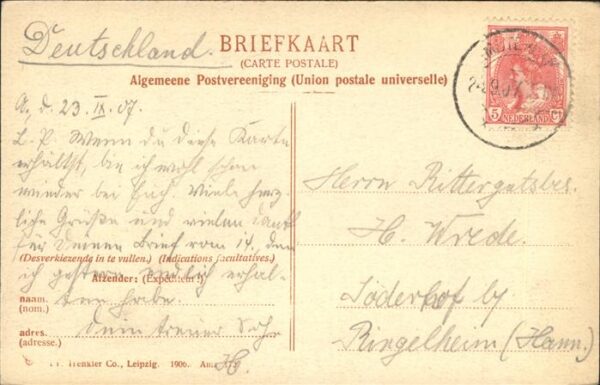 Deutschland.
BRIEFKAART
(CARTE POSTALE)
Algemeene Postvereeniging (Union postale universelle)
5 NEDERLAND Ct
A, d. 23. IX. 07.
L. P. Wenn du diese Karte
erhältst, bin ich wohl schon
wieder bei Euch. Viele herz-
liche Grüße und vielen Dank
für Deinen Brief vom 14. den
(Desverkiezende in te vullen.) (Indications facultatives.)
ich gestern endlich erhal-
Afzender: (Expéditeur:)
ten habe.
naam.
(nom.)
Dein treuer Sohn
adres.
(adresse.)
H.
Trenkler Co., Leipzig. 1906.
Herrn Rittergutsbes.
H. Wrede.
Söderhof by
Ringelheim (Hann.)